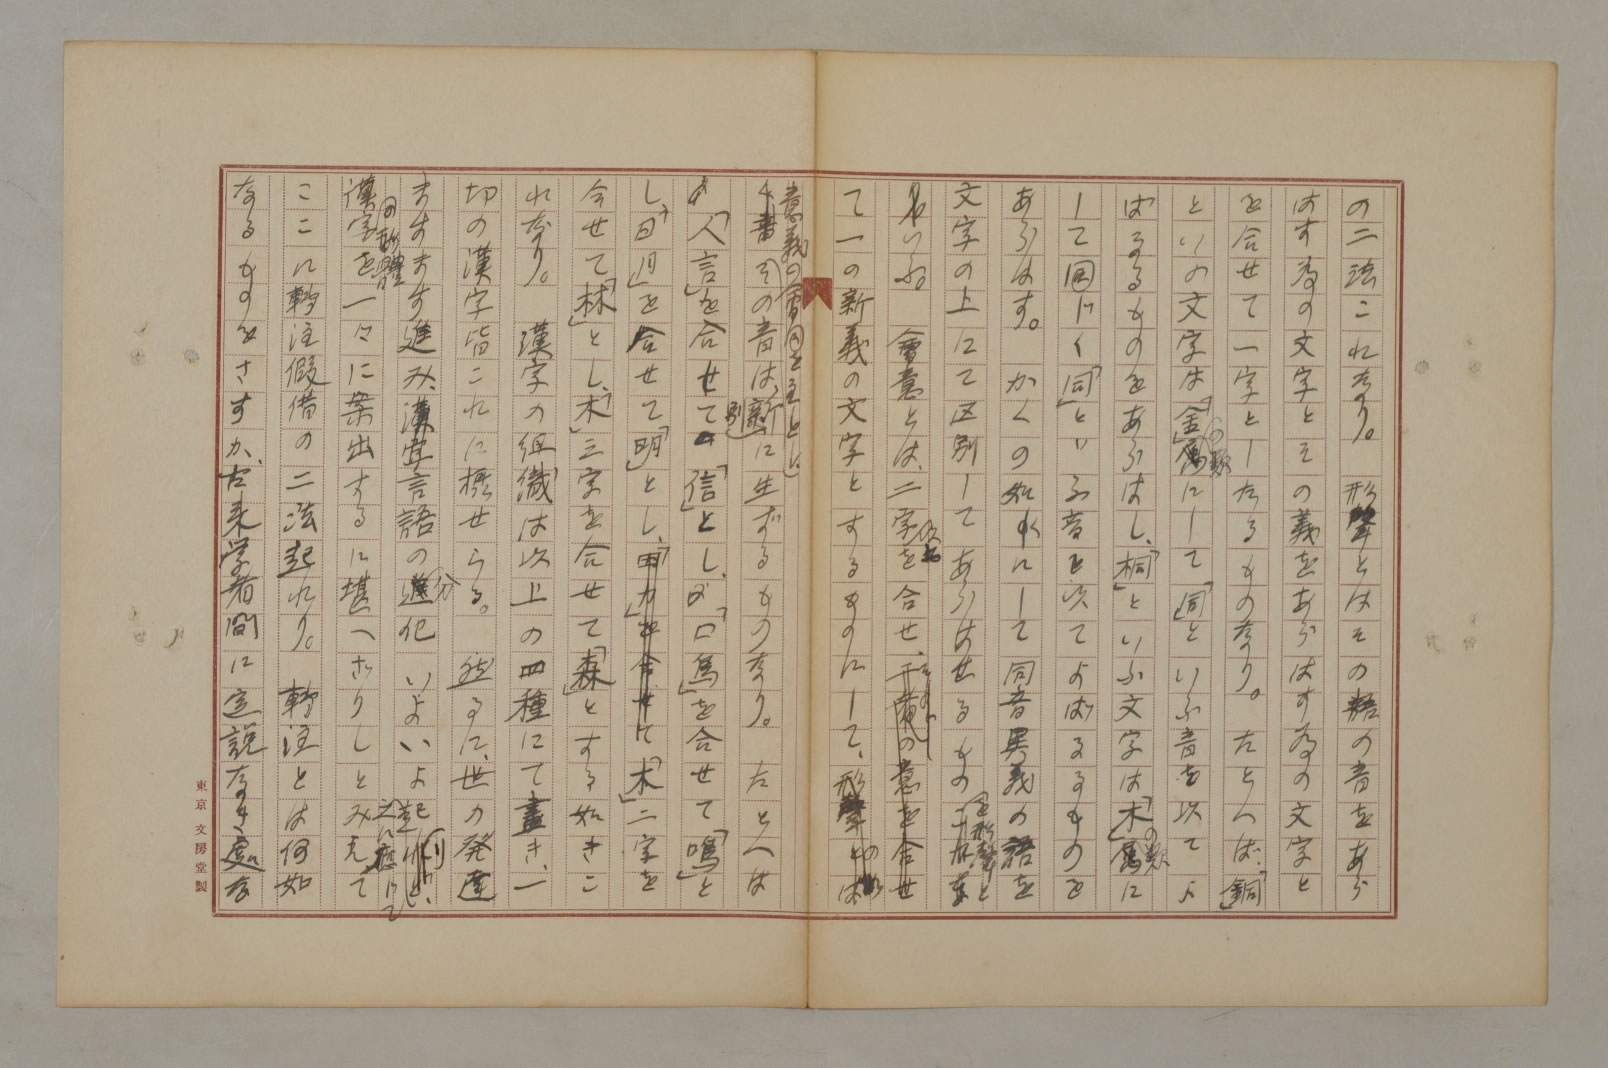 の二法これなり。形聲とはその語の音をあら
はす為の文字とその義をあらはす為の文字と
を合せて一字としたるものなり。たとへば、「銅」
といの文字は「金」の類にして「同」といふ音を以てよ
ばるるものをあらはし、「桐」といふ文字は「木」の類に
して同じく「同」といふ音を以てよばるるものを
あらはす。かくの如くにして同音異義の語を
文字の上にて区別してあらはせるもの
を形聲と
いふ。會意とは、二字を合せ、の意を合せ
て一の新義の文字とするものにして、形聲とは
意義の會同を主とし
その音は、別に生ずるものなり。たとへば
「人」「言」を合せて「信」とし、「口」「鳥」を合せて「鳴」と
し、「日」「月」を合せて「明」とし、「木」二字を
合せて「林」とし、「木」三字を合せて「森」とする如きこ
れなり。漢字の組織は以上の四種にて盡き、一
切の漢字皆これに攝せらる。然るに、世の発達
ますます進み、言語の分化いよいよ
起りしと、
之に應じて
の形體
漢字を一々に案出するに堪へざりしとみえて
ここに轉注假借の二法起れり。轉注とは何如
なるものをさすか、古来学者間に定説なき處
東京 文房堂製